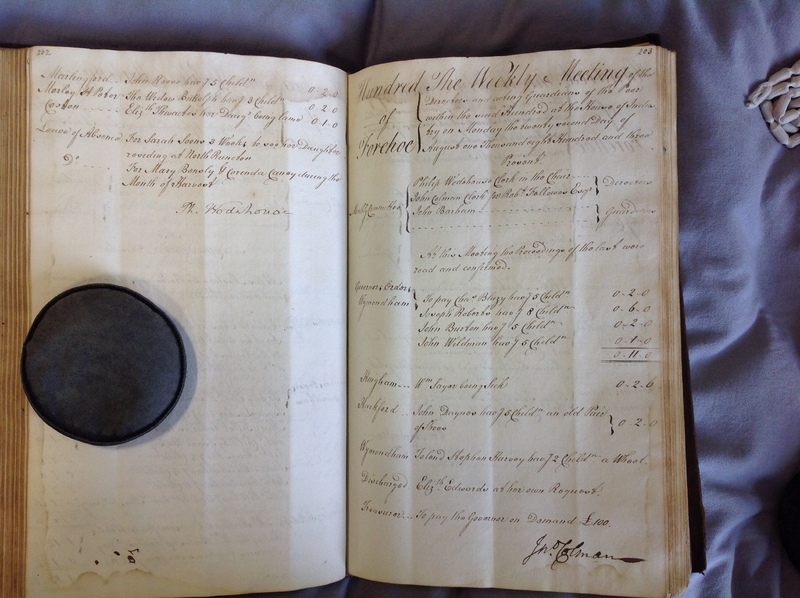 202
Marlingford .. John Reeve hav.g 5 Child.n 0-2-0
Morley St Peter The Widow hav.g 3 Child.n 0-2-0
Coston Eliz.th Thracter her Daug.r being lame 0-1-0
Leave of Absence For Sarah Soons 3 Weeks to see her Daughter
residing at North Runcton
D.o For Mary Bonely & Corenda Canoy during the
Month of Harvest
Ph. Wodehouse
203
Hundred of Forehoe
The Weekly Meeting of the
Directors and acting Guardians of the Poor
within the said Hundred at the House of Indus
try on Monday the twenty second Day of
August one Thousand eight Hundred and three
Present.
Philip Wodehouse Clerk in the Chair
John Colman Clerk for Rob.t Fellowes Esq.r
Directors
Weekly Committee
John Barham
Guard
At this Meeting the Proceedings of the last were
read and confirmed.
Governors Orders
Wymondham To pay Cha.s Blazy hav.g 5 Child.n 0-2-0
Joseph Roberts hav.g 8 Child.n 0-6-0
John Burton hav.g 5 Child.n 0-2-0
John Wildman hav.g 5 Child.n 0-1-0
0-11-0
Hingham W.m Sayer being Sick 0-2-6
Hackford .. John Daynes hav.g 5 Child.n an old Pair
of Shoes 0-2-0
Wymondham To lend Stephen Harvey hav.g 2 Child.n a Wheel.
Discharged Eliz.th Edwards at her own Request.
Treasurer To pay the Governor on Demand £100.
Jn.o Colman